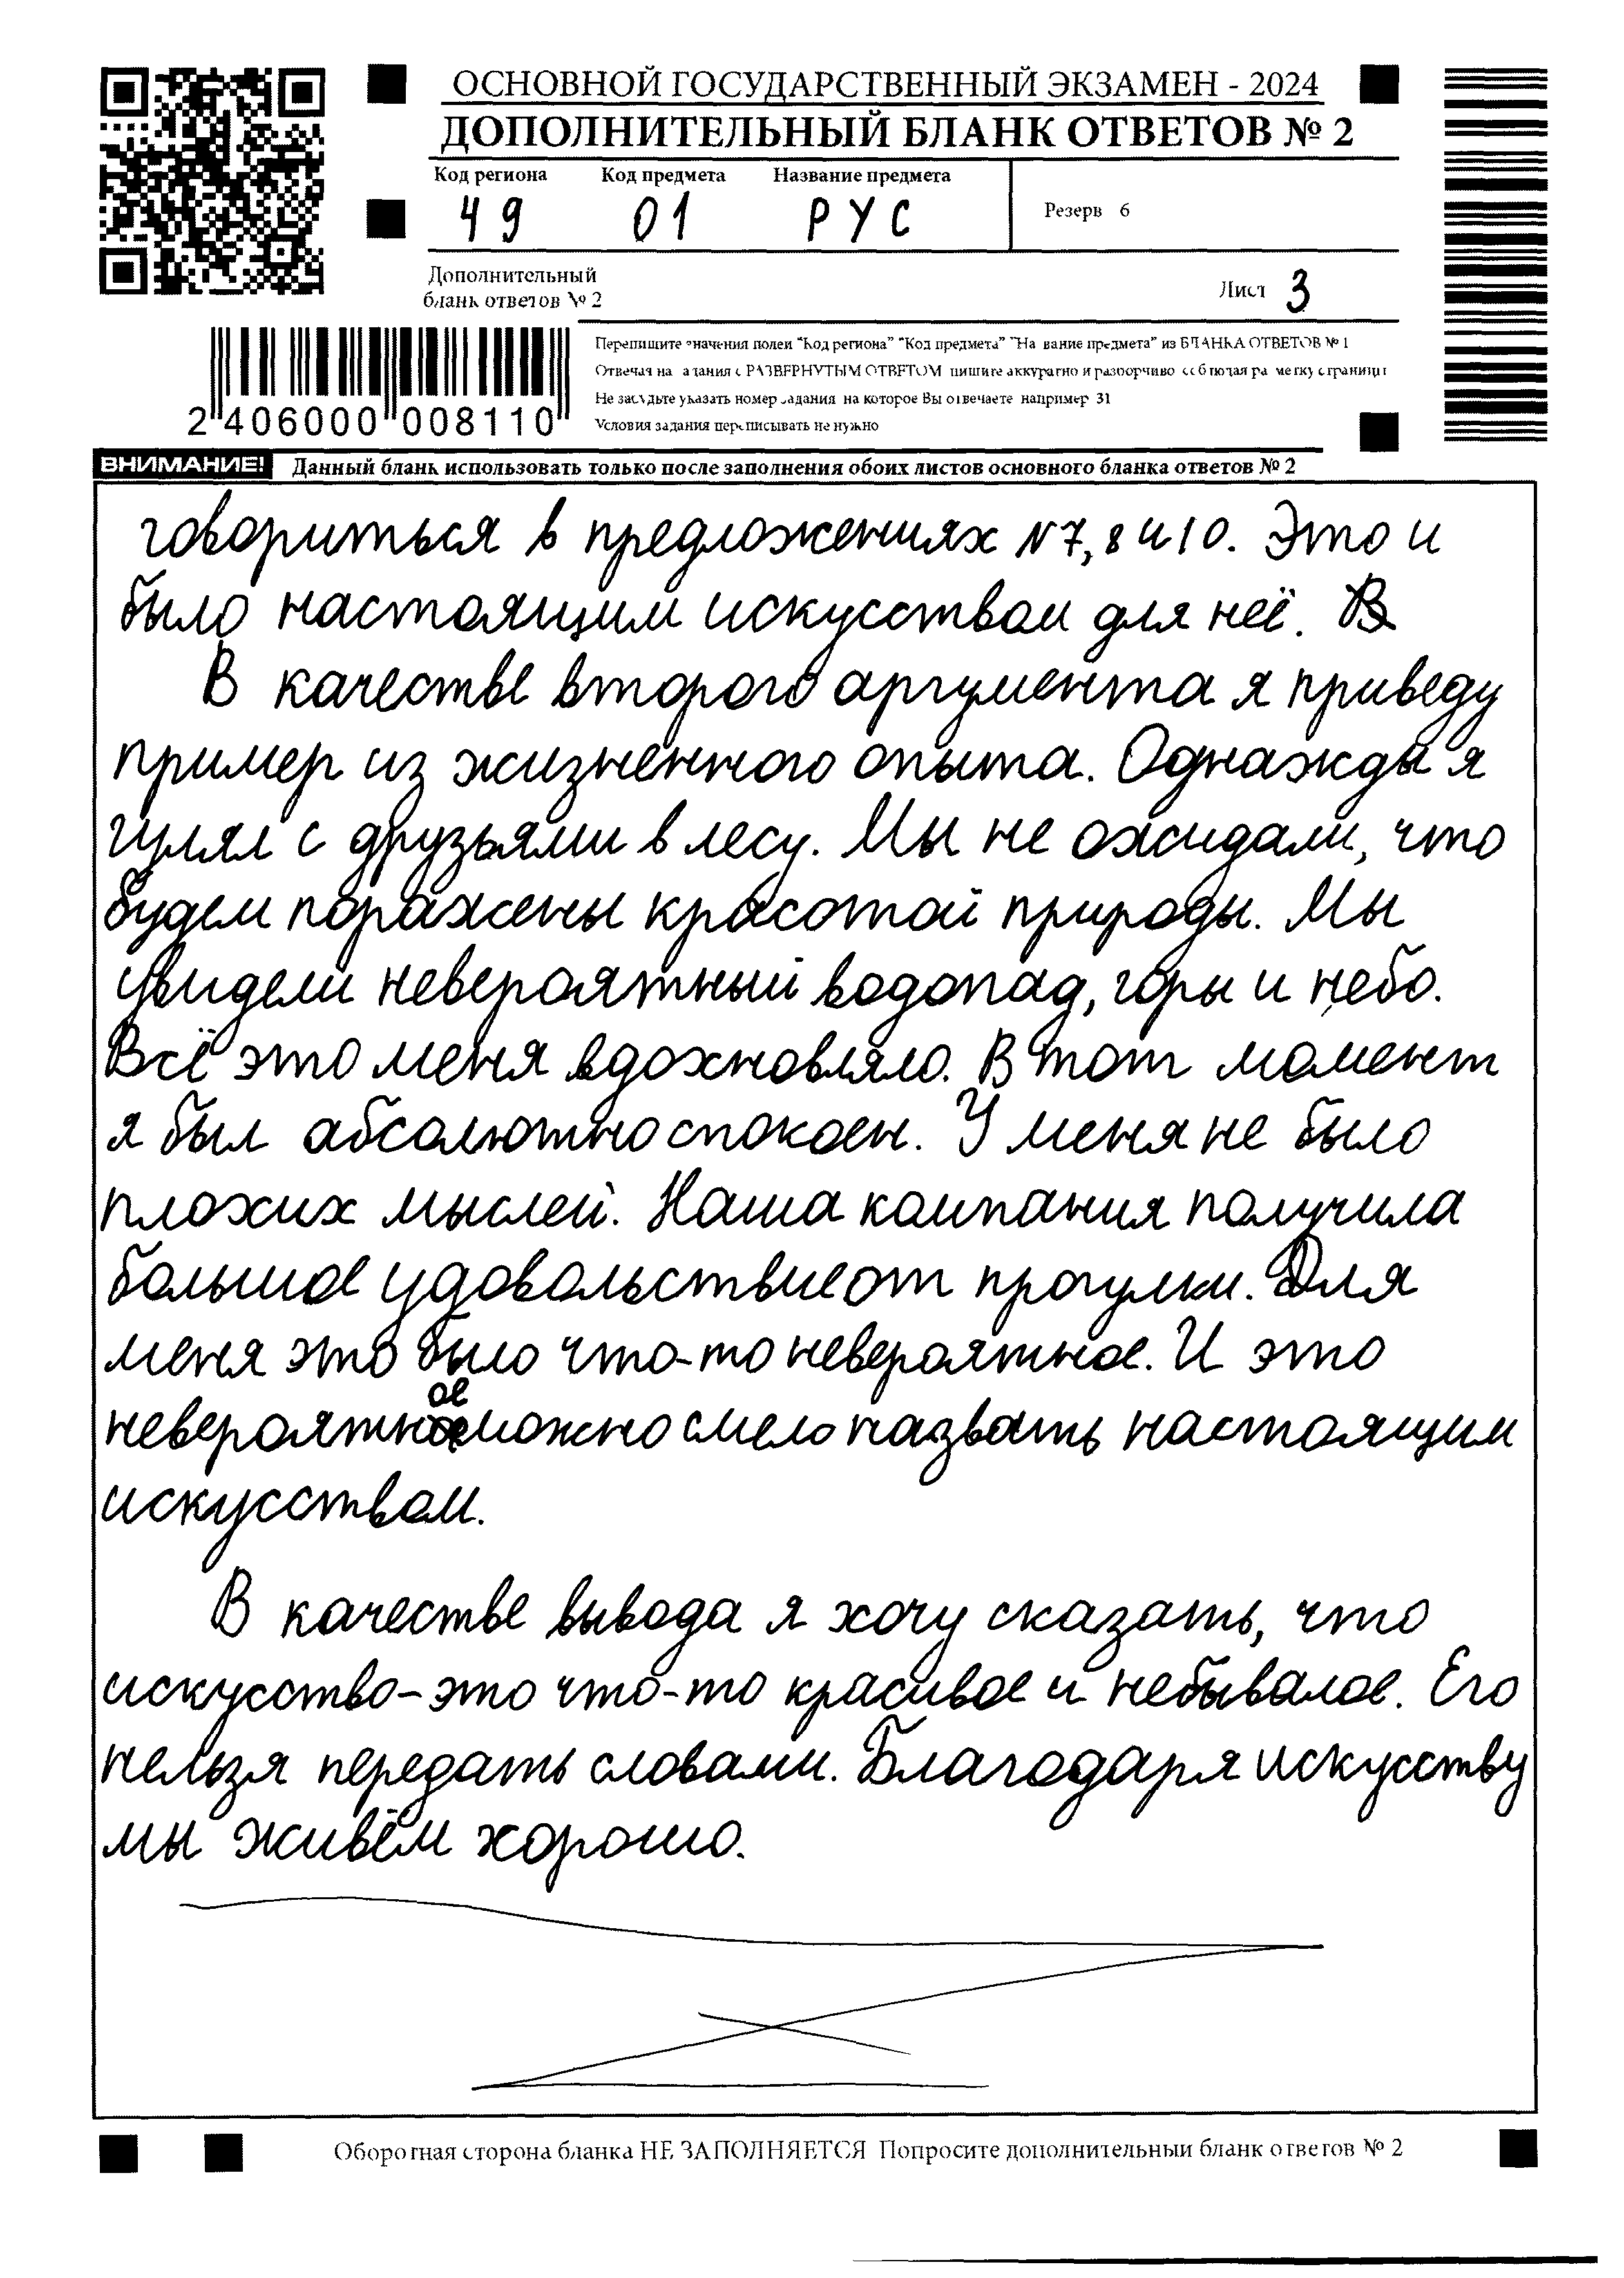 ОСНОВНОЙ ГОСУДАРСТВЕННЫЙ ЭКЗАМЕН - 2024
ДОПОЛНИТЕЛЬНЫЙ БЛАНК ОТВЕТОВ № 2
Код региона Код предмета Название предмета
49 01 РУС
Резерв 6
Дополнительный
бланк ответов № 2
Лист 3
Перепишите значения полей "Код региона" "Код предмета" "Название предмета" из БЛАНКА ОТВЕТОВ № 1
Отвечая на задания с РАЗВЕРНУТЫМ ОТВЕТОМ пишите аккуратно и разборчиво соблюдая разметку страницы
Не забудьте указать номер задания на которое Вы отвечаете например 31
Условия задания переписывать не нужно
2 406000 008110
ВНИМАНИЕ! Данный бланк использовать только после заполнения обоих листов основного бланка ответов № 2
говориться в предложениях №7, 8 и 10. Это и
было настоящим искусством для неё.
В качестве второго аргумента я приведу
пример из жизненного опыта. Однажды я
гулял с друзьями в лесу. Мы не ожидали, что
будем поражены красотой природы. Мы
увидели невероятный водопад, горы и небо.
Всё это меня вдохновляло. В тот момент
я был абсолютно спокоен. У меня не было
плохих мыслей. Наша компания получила
большое удовольствие от прогулки. Для
меня это было что-то невероятное. И это
невероятное можно смело назвать настоящим
искусством.
В качестве вывода я хочу сказать, что
искусство-это что-то красивое и небывалое. Его
нельзя передать словами. Благодаря искусству
мы живём хорошо.
Оборотная сторона бланка НЕ ЗАПОЛНЯЕТСЯ Попросите дополнительный бланк ответов № 2